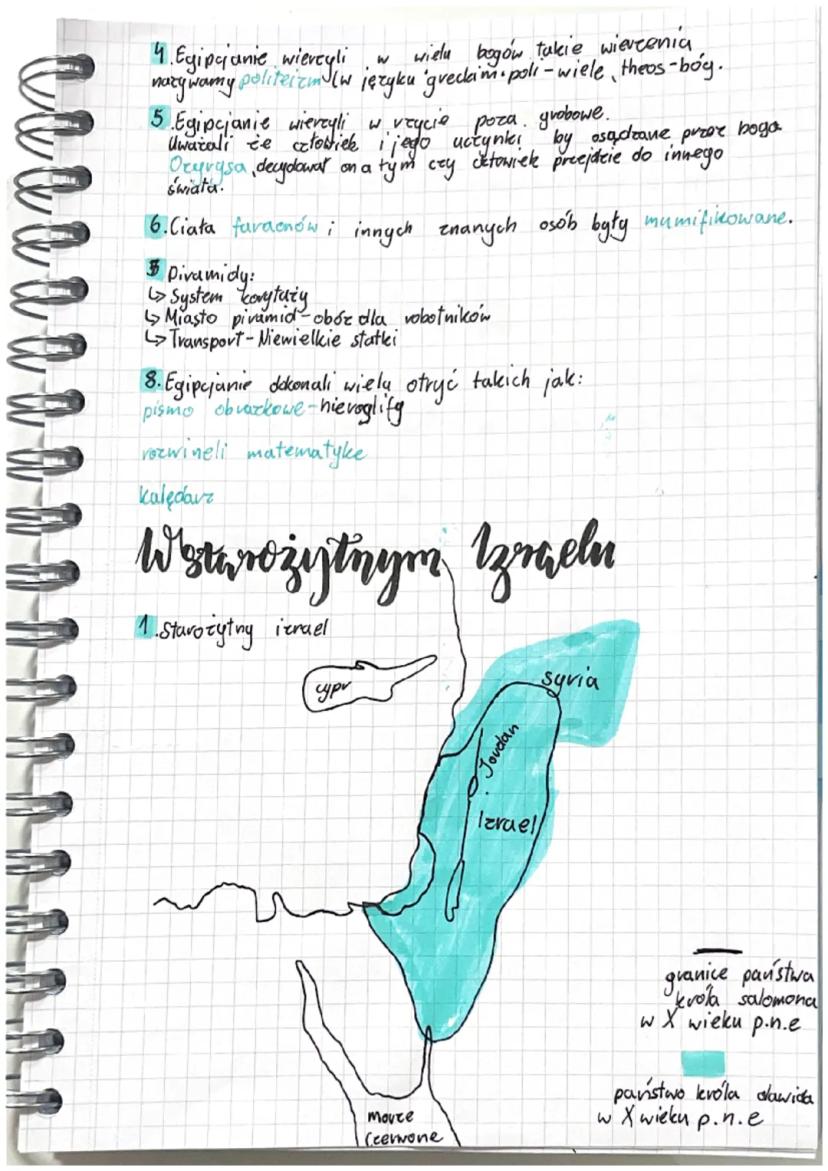 4. Egipcjanie wierzyli w wielu bogów takie wierzenia
nazywamy politeizm (w języku greckim: poli - wiele, theos - bóg.
5. Egipcjanie wierzyli w życie poza grobowe.
Uważali że człowiek i jego uczynki by osądzane przez boga
Ozyrysa, decydował on a tym czy człowiek przejdzie do innego
świata.
6. Ciała faraonów i innych znanych osób były mumifikowane.
Piramidy:
↳ System korytaży
↳ Miasto piramid - obóz dla robotników
↳ Transport - Niewielkie statki
8. Egipcjanie dokonali wielu otryć takich jak:
pismo obrazkowe - hieroglify
rozwineli matematyke
kalędarz
W starożytnym Izraelu
1. Starożytny izrael
cypr
syria
Jordan
Izrael
granice państwa
króla salomona
w X wieku p.n.e
państwo króla dawida
w X wieku p.n.e
morze
czerwone